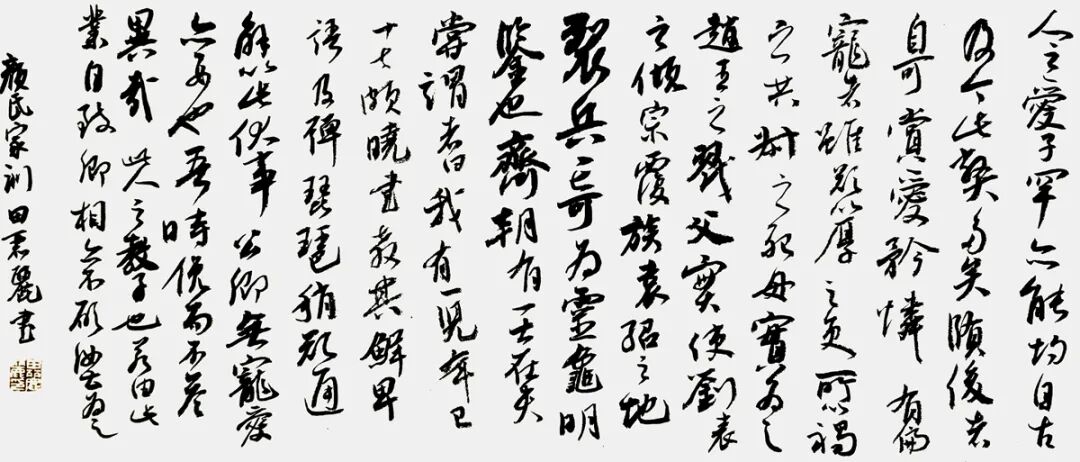 人之愛子罕亦能均自古
及今此弊多矣俊者
自可賞愛矜憐有偏
寵者雖欲以厚之更所以禍
之共叔之死母實為之
趙王之戮父實使劉表
之傾宗覆族袁紹之地
裂兵亡可為靈龜明
鑒也齊朝有一士夫
嘗謂曰我有一兒年已
十七頗曉書教其鮮卑
語及彈琵琶稍欲通
解以此伏事公卿無寵愛
亦要也吾時俛而不答
異哉此人之教子也若由此
業自致卿相亦不願汝為之
顏氏家訓田麗書